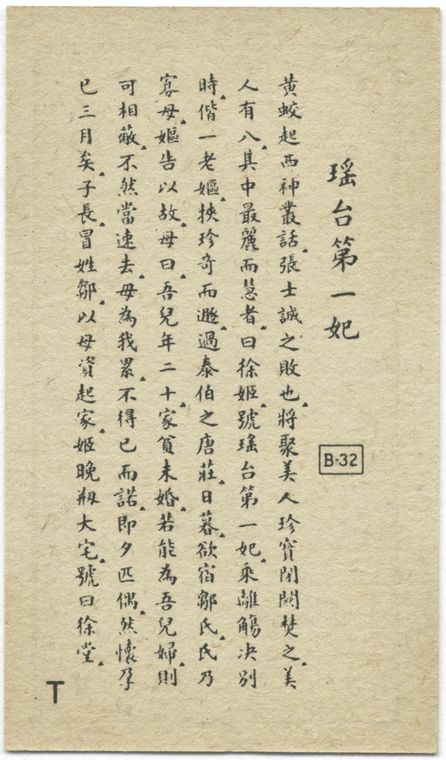 瑶台第一妃
B-32
黄蛟起西神叢話張士誠之敗也▲將聚美人珍寶閉閣焚之▲美
人有八▲其中最麗而慧者▲曰徐姬▲號瑤台第一妃▲乘離觴決別
時▲偕一老嫗▲挾珍奇而遯▲過泰伯之唐莊▲日暮欲宿鄒氏▲氏乃
寡母▲嫗告以故▲母曰▲吾兒年二十▲家貧未婚▲若能為吾兒婦▲則
可相蔽▲不然當速去▲毋為我累▲不得已而諾▲即夕匹偶▲然懷孕
已三月矣▲子長▲冒姓鄒▲以母資起家▲姬晚剏大宅▲號曰徐堂▲
T